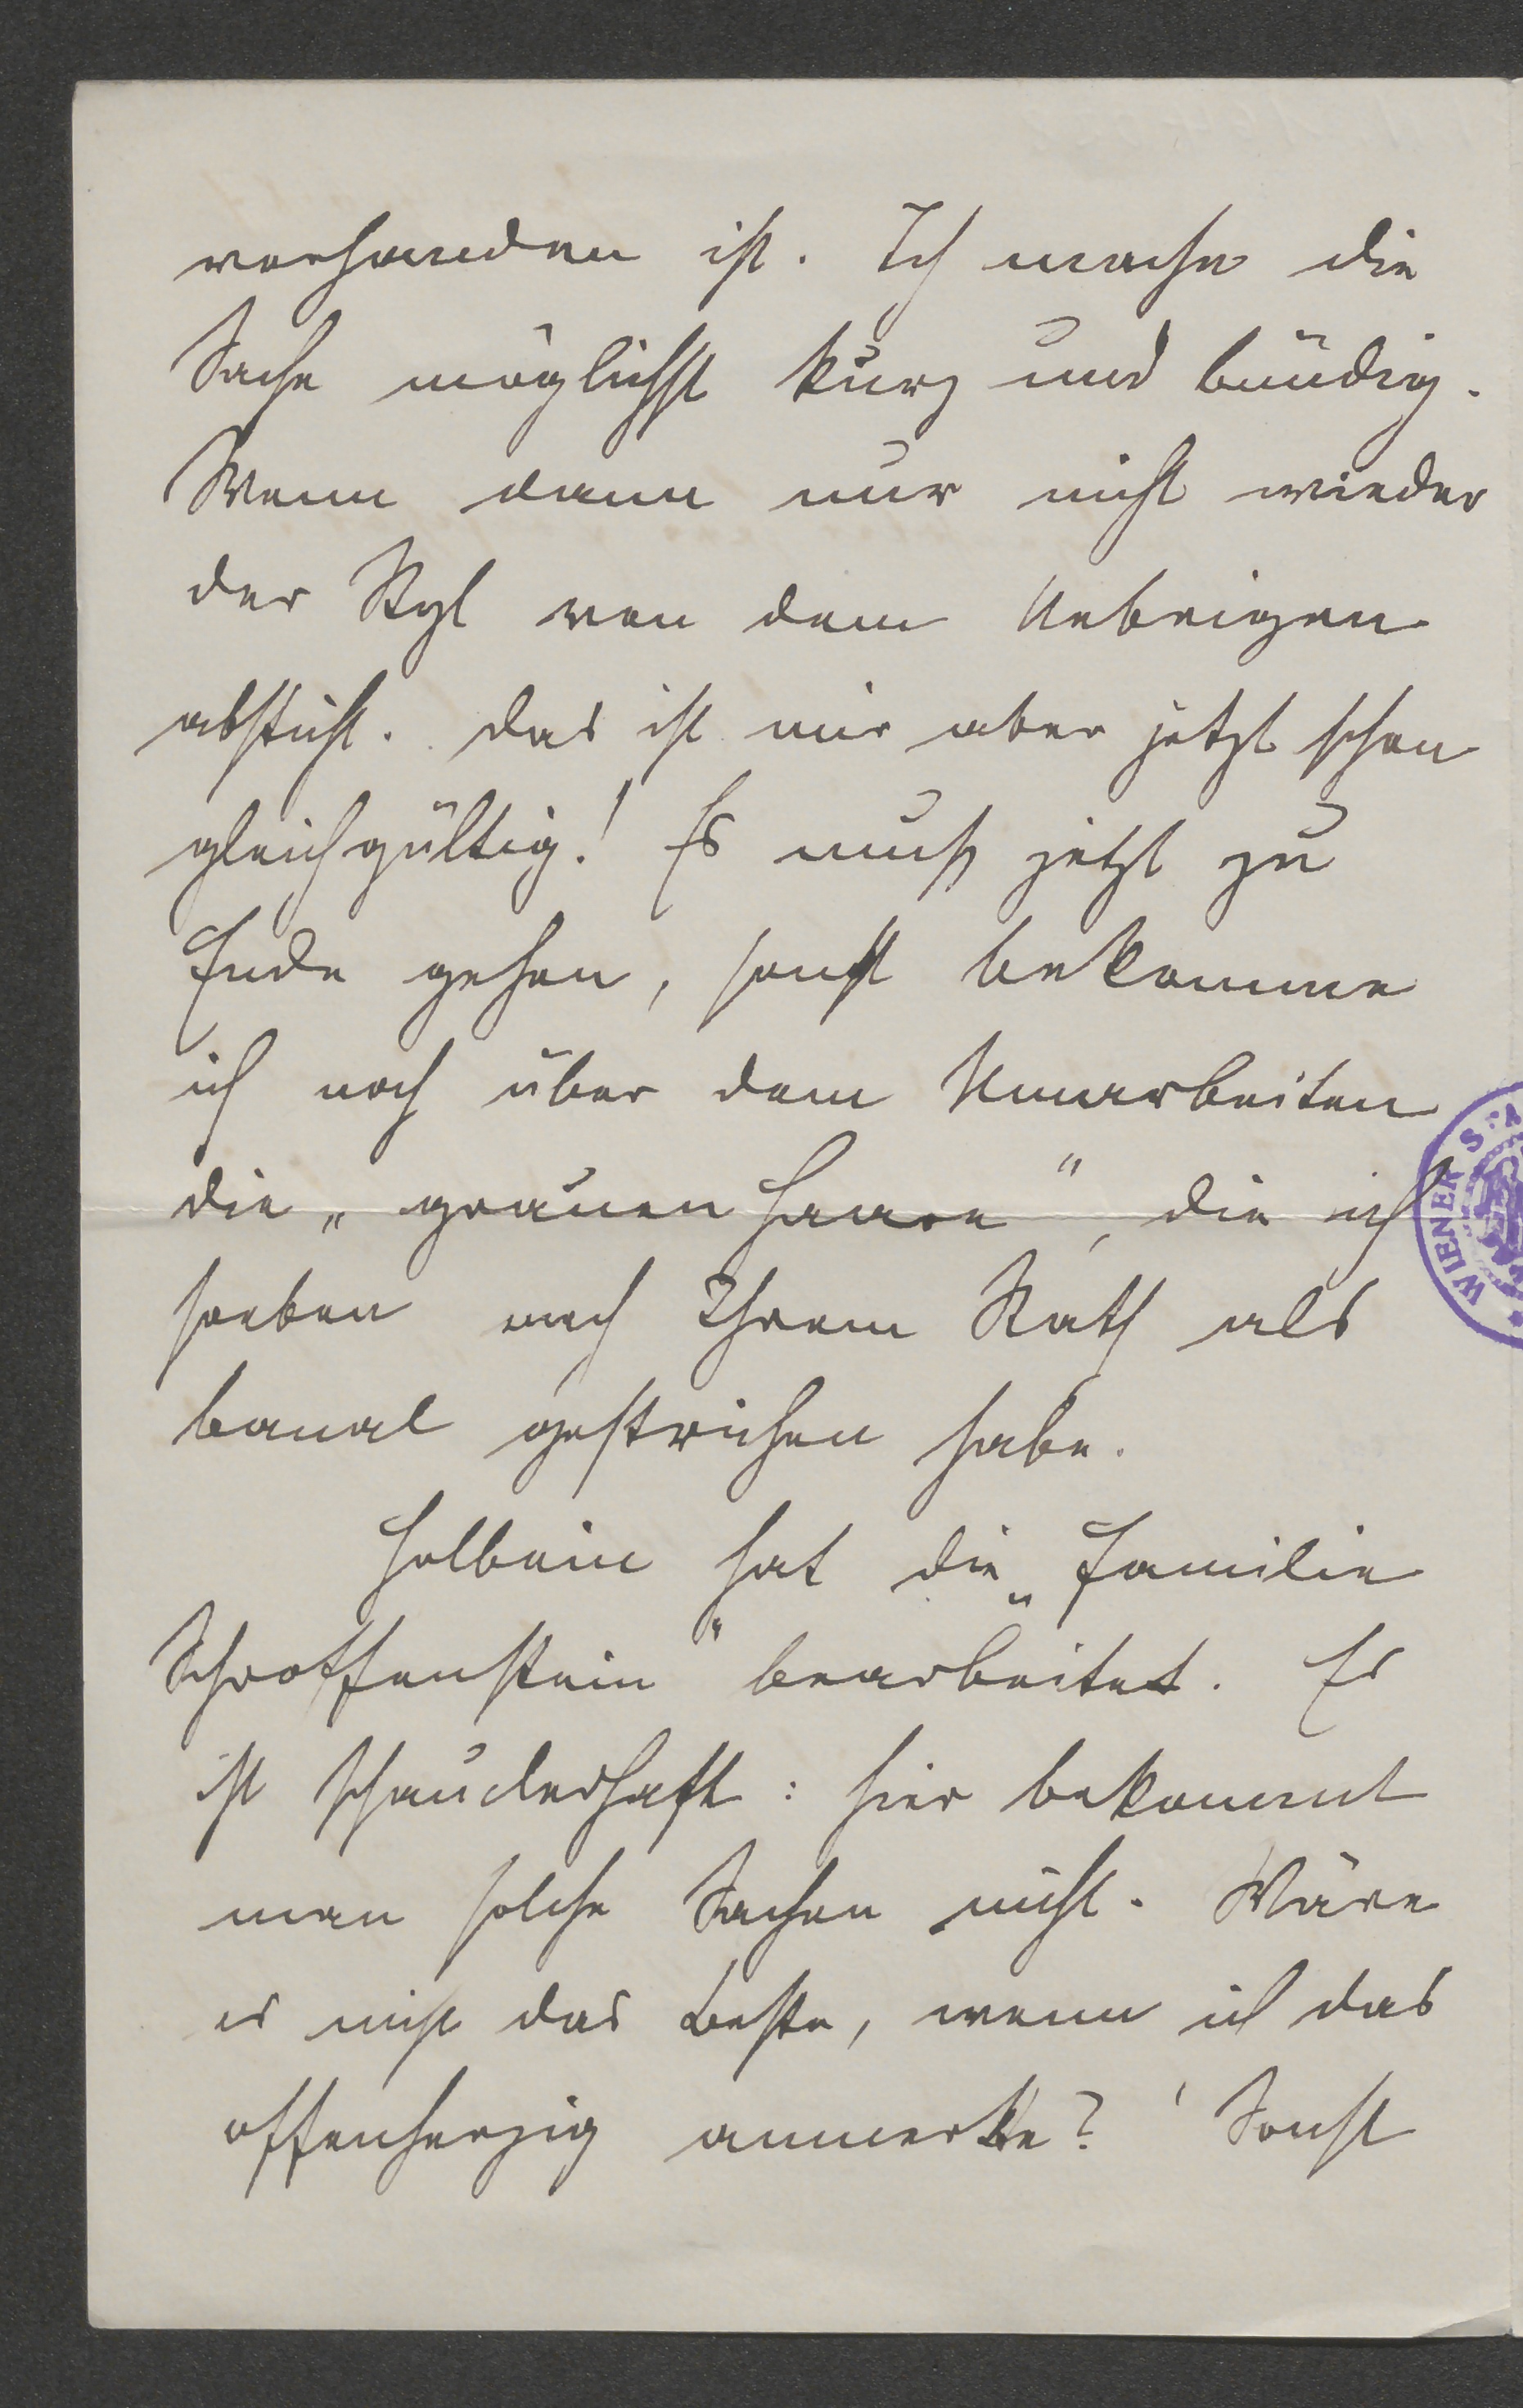 vorhanden ist. Ich mache die
Sache möglichst kurz und bündig.
Wenn dann nur nicht wieder
der Styl von dem Uebrigen
absticht. Das ist mir aber jetzt schon
gleichgültig! Es muß jetzt zu
Ende gehen, sonst bekomme
ich noch über dem Umarbeiten
die „grauen Haare“, die ich
soeben nach Ihrem Rath als
banal gestrichen habe.
Holbein hat die „Familie
Schroffenstein“ bearbeitet. Es
ist schauderhaft: hier bekommt
man solche Sachen nicht. Wäre
es nicht das Beste, wenn ich das
offenherzig anmerkte? Sonst
WIENER